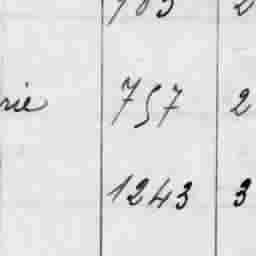 rie 757 2
1243 3